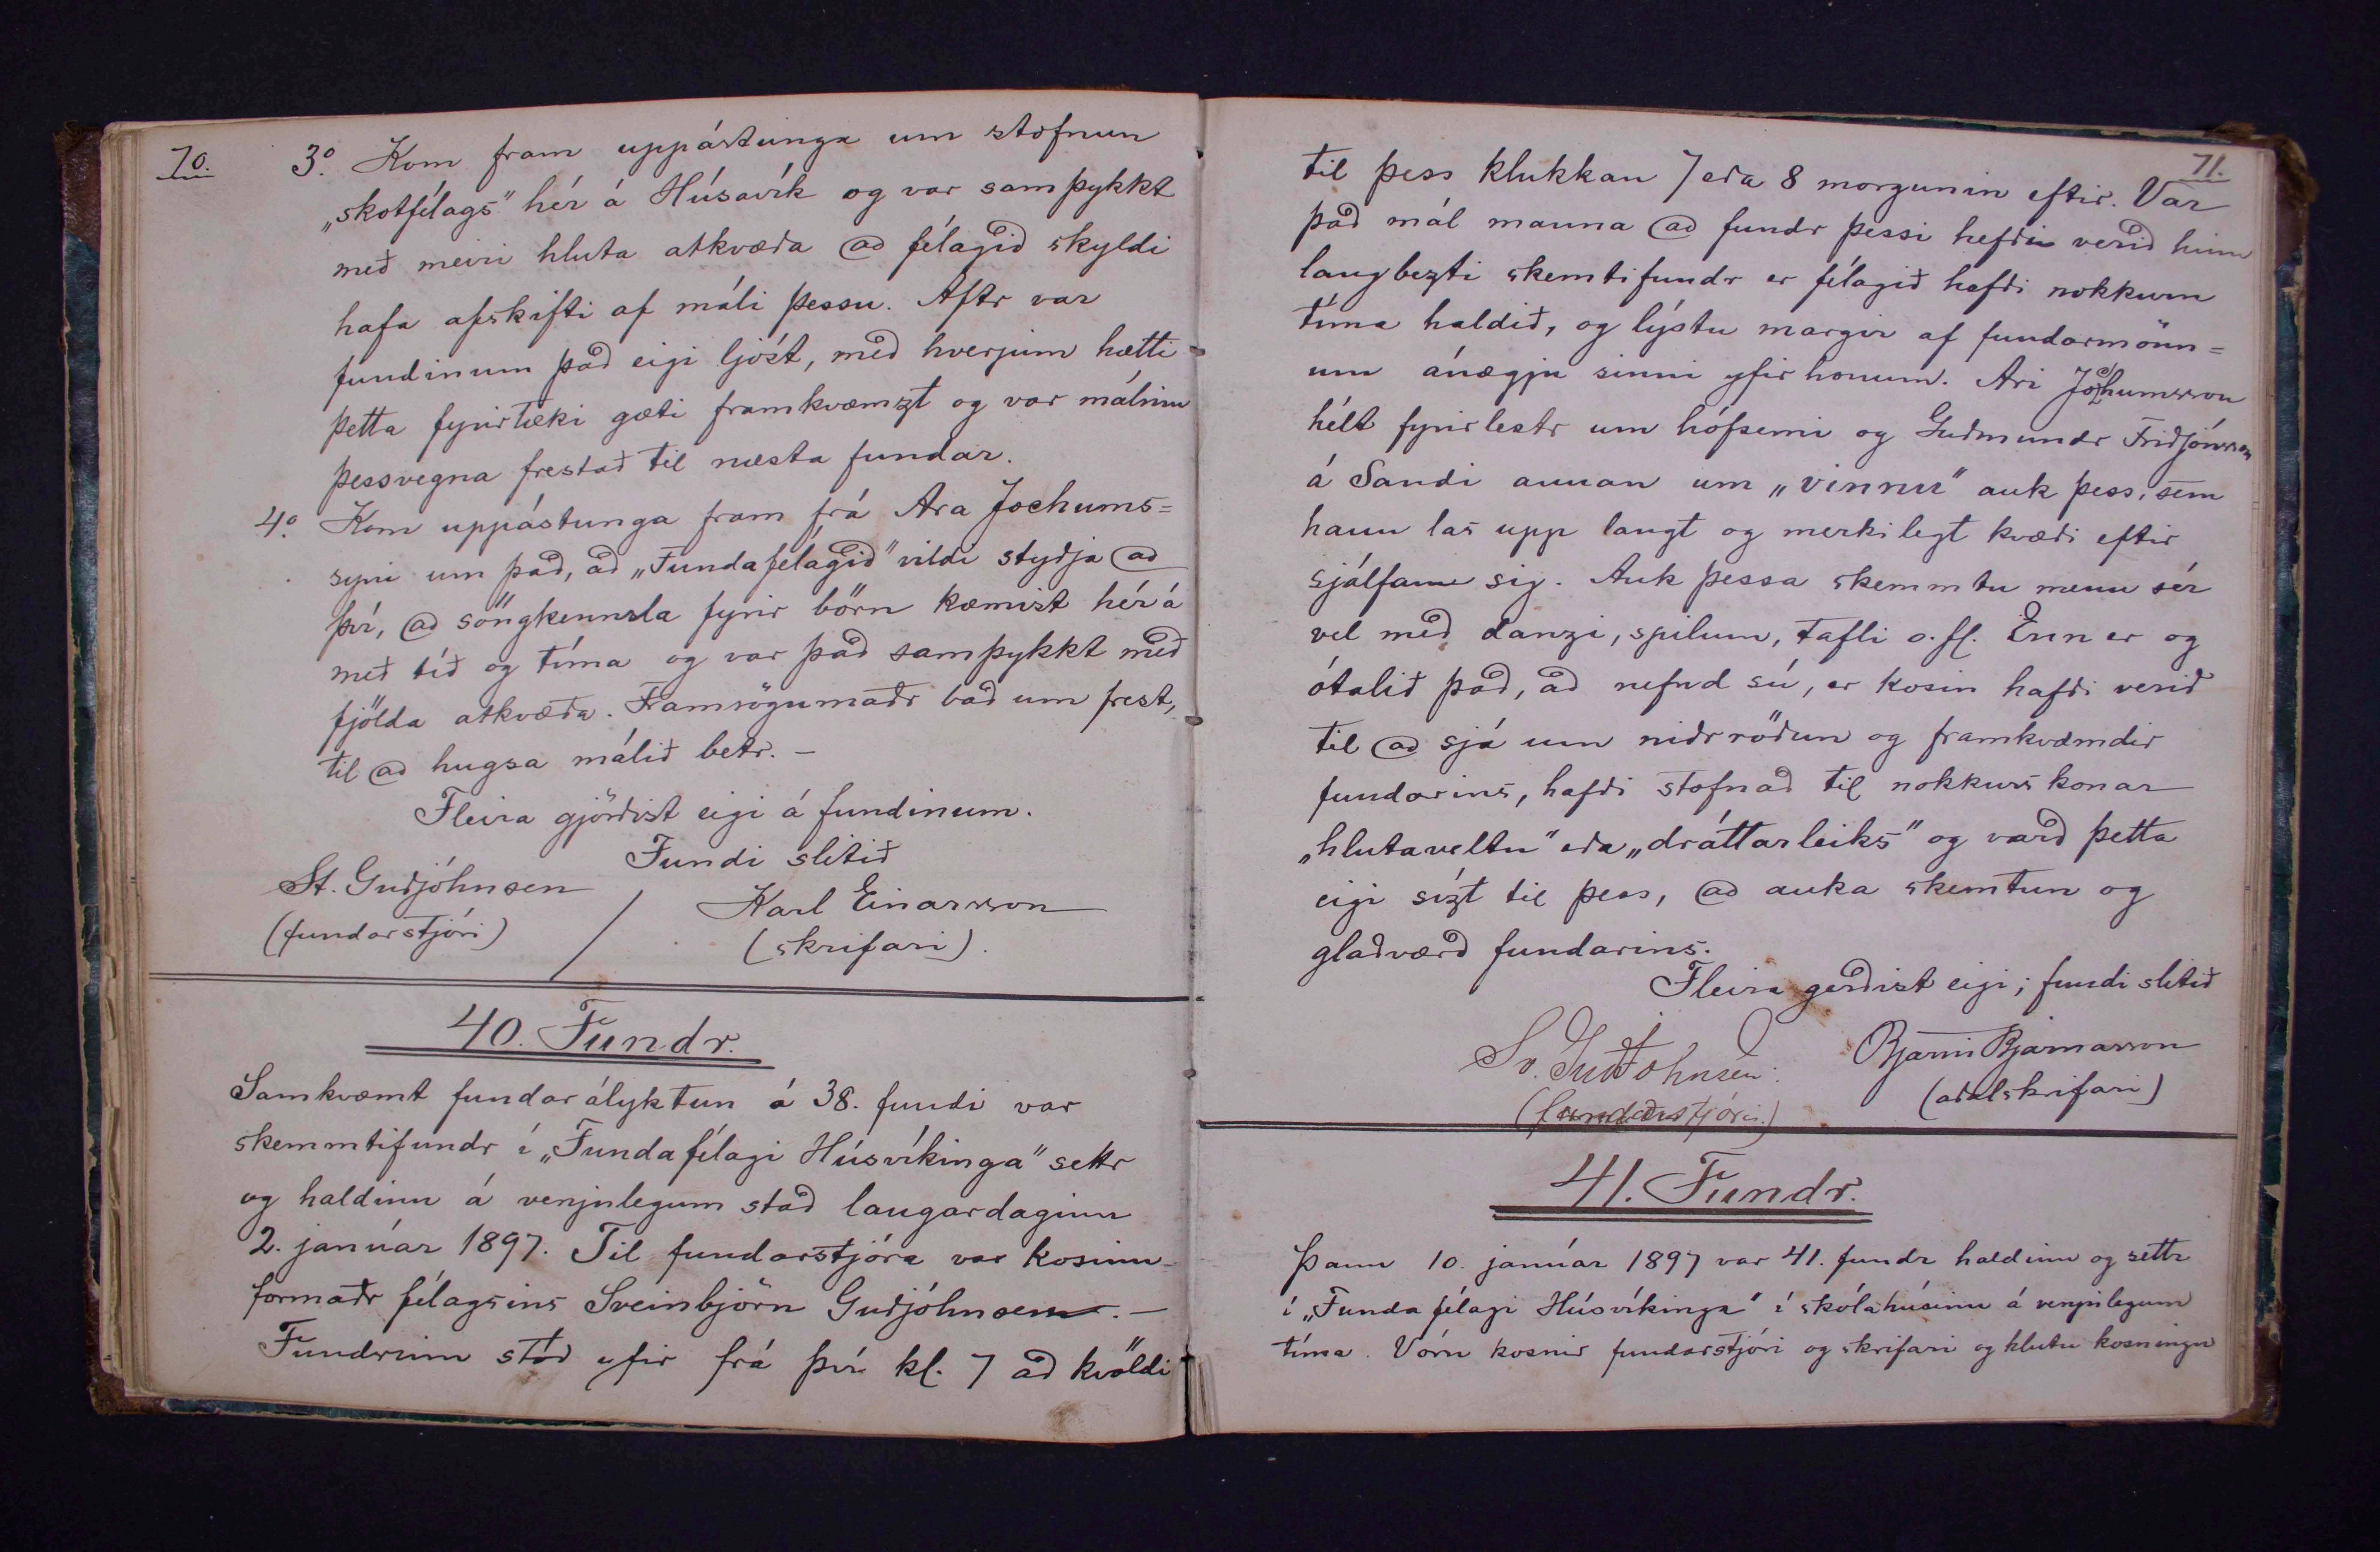 70.
3º. Kom fram uppástunga um stofnun
„skotfélags" hér á Húsavík og var samþykkt
með meiri hluta atkvæða að félagið skyldi
hafa afskifti af máli þessu. Aftr var
fundinum það eigi ljóst, með hverjum hætti
þetta fyrirtæki gæti framkvæmzt og var málinu
þessvegna frestað til næsta fundar.
4º. Kom uppástunga fram frá Ara Jochums=
syni um það, að „Fundafélagið" vildi styðja að
því, að söngkennsla fyrir börn kæmist hér á
með tíð og tíma og var það samþykkt með
fjölda atkvæða. Framsögumaðr bað um frest,
til að hugsa málið betr. –
Fleira gjörðist eigi á fundinum.
Fundi slitið
St. Guðjóhnsen
(fundarstjóri)
Karl Einarsson
(skrifari).
40. Fundr.
Samkvæmt fundarályktun á 38. fundi var
skemmtifundr í „Fundafélagi Húsvíkinga" settr
og haldinn á venjulegum stað laugardaginn
2. janúar 1897. Til fundarstjóra var kosinn
formaðr félagsins Sveinbjörn Guðjóhnsen. –
Fundrinn stóð yfir frá því kl. 7 að kvöldi
71.
til þess klukkan 7 eða 8 morgunin eftir. Var
það mál manna að fundr þessi hefði verið hinn
langbezti skemtifundr er félagið hefði nokkurn
tíma haldið, og lýstu margir af fundarmönn=
um ánægju sinni yfir honum. Ari Jochumsson
hélt fyrirlestr um hófsemi og Guðmundr Friðjónsson
á Sandi annan um „vinnu" auk þess, sem
hann las upp langt og merkilegt kvæði eftir
sjálfann sig. Auk þessa skemmtu menn sér
vel með danzi, spilum, tafli o. fl. Enn er og
ótalið það, að nefnd sú, er kosin hafði verið
til að sjá um niðrröðun og framkvæmdir
fundarins, hafði stofnað til nokkurs konar
„hlutaveltu" eða „dráttarleiks" og varð þetta
eigi sízt til þess, að auka skemtun og
glaðværð fundarins.
Fleira gerðist eigi; fundi slitið
Sv. Guðjohnsen.
(fundarstjóri.)
Bjarni Bjarnarson
(aðalskrifari)
41. Fundr.
Þann 10. janúar 1897 var 41. fundr haldinn og settr
í „Fundafélagi Húsvíkinga" í skólahúsinu á venjulegum
tíma. Vóru kosnir fundarstjóri og skrifari og hlutu kosningu